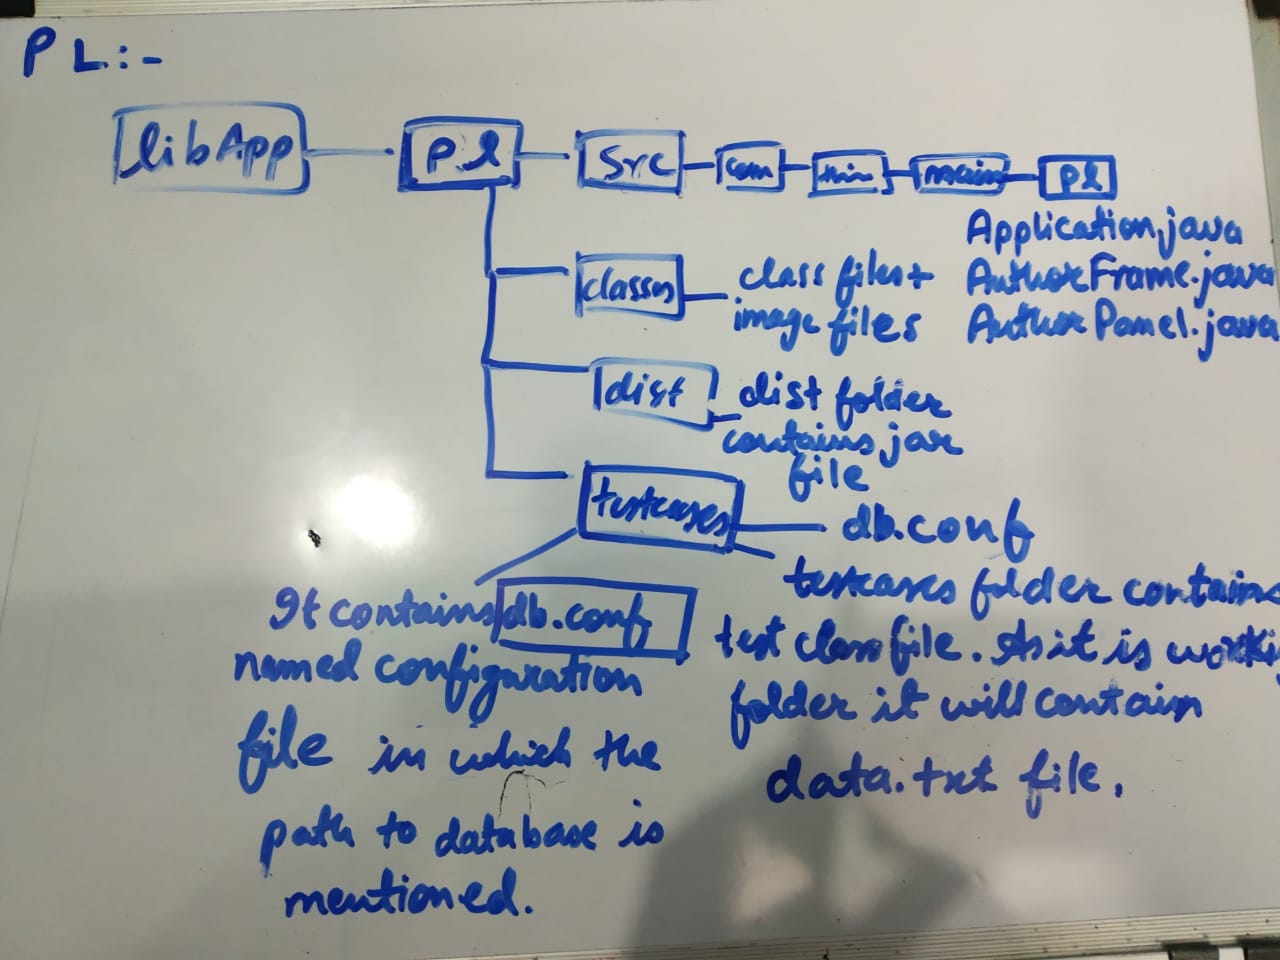 PL:-
libApp
pl
src
com
main
pl
Application.java
AuthorFrame.java
AuthorPanel.java
classes
class files +
image files
dist
dist folder
contains jar
file
testcases
db.conf
testcases folder contains
test class file. As it is
folder it will contain
data.txt file.
It contains db.conf
named configuration
file in which the
path to database is
mentioned.